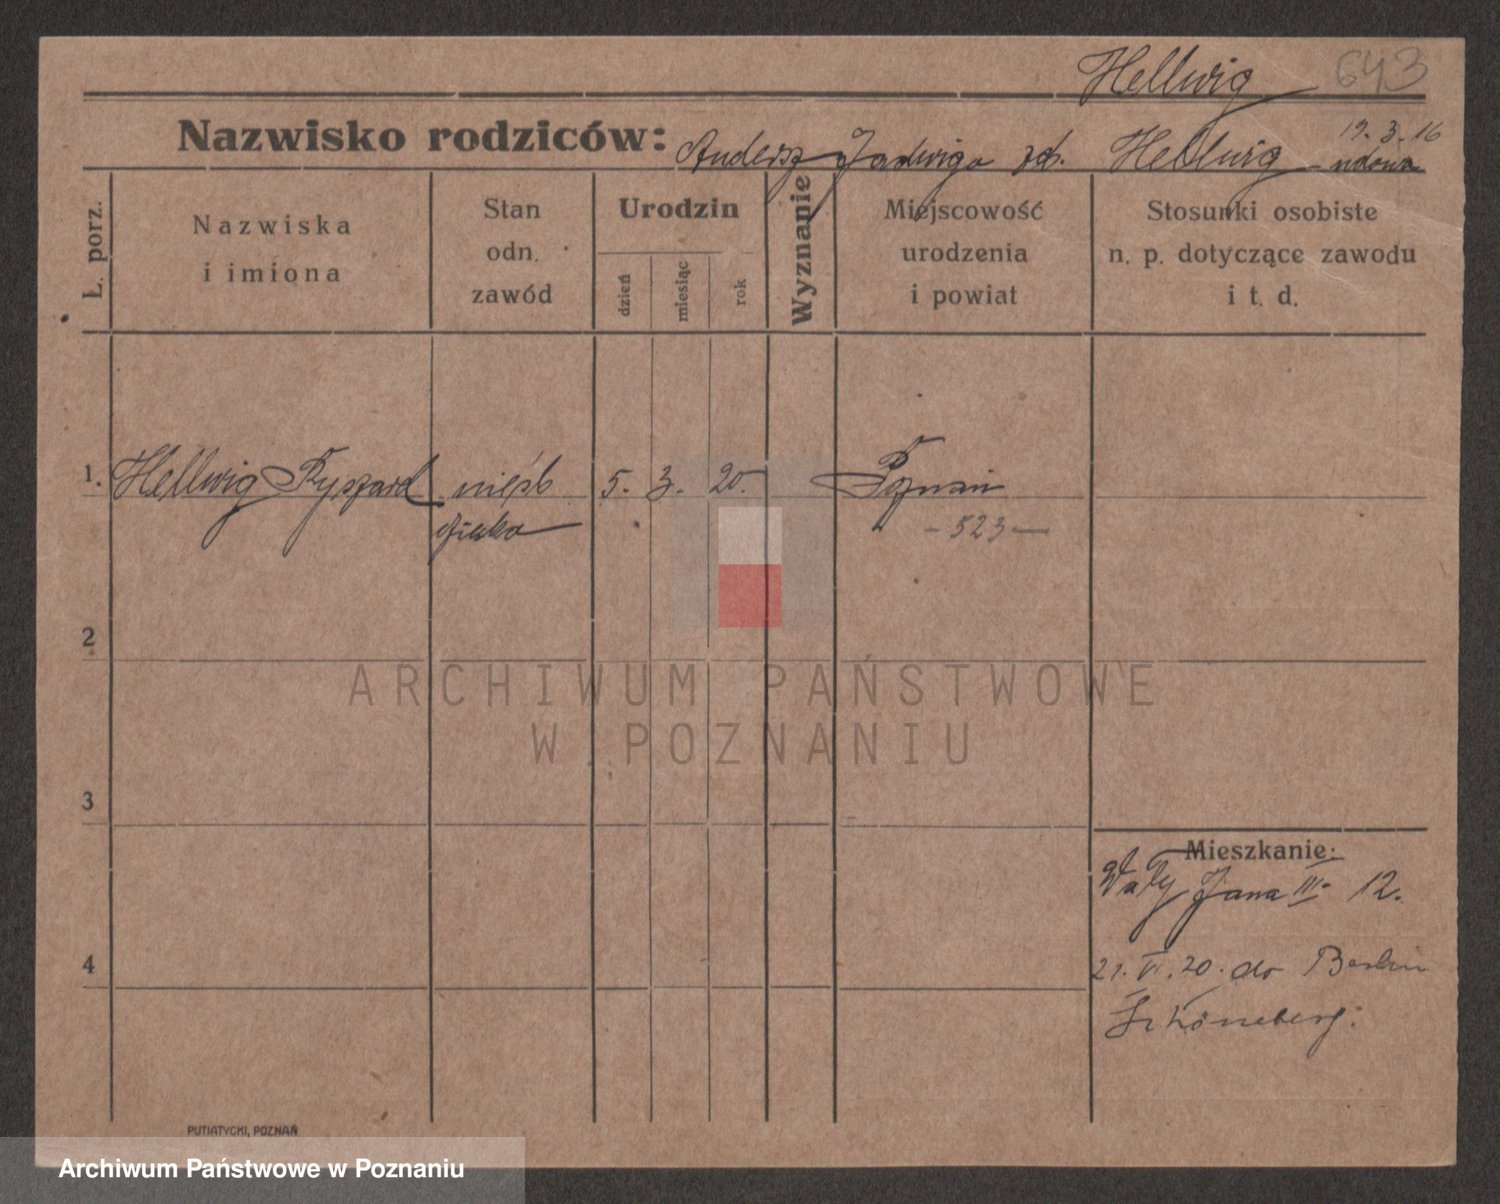 Hellwig 643
19. 3. 16
Nazwisko rodziców: Andersz Jadwiga zd. Hellwig - wdowa
L. porz.
Nazwiska
i imiona
Stan
odn.
zawód
Urodzin
dzień
miesiąc
rok
Wyznanie
Miejscowość
urodzenia
i powiat
Stosunki osobiste
n. p. dotyczące zawodu
i t. d.
1. Hellwig Ryszard nieśb 5. 3. 20. Poznań
- 523 -
2
3
4
Mieszkanie:
Wały Jana III. 12.
21. VI. 20. do Berlin
Schöneberg.
PUTIATYCKI, POZNAŃ
ARCHIWUM PAŃSTWOWE
W POZNANIU
Archiwum Państwowe w Poznaniu